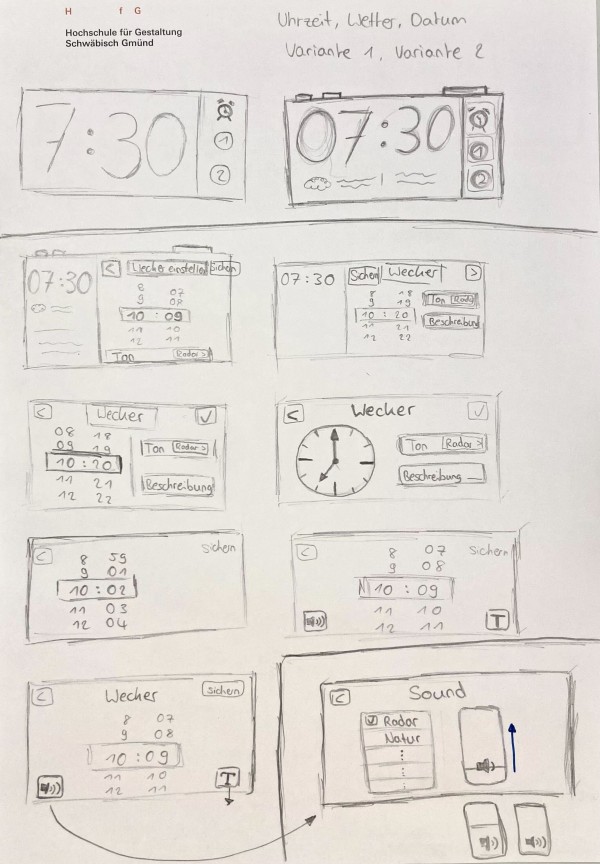 H f G
Hochschule für Gestaltung
Schwäbisch Gmünd
Uhrzeit, Wetter, Datum
Variante 1, Variante 2
7:30
1
2
07:30
1
1
2
07:30
< Wecker einstellen Sichern
8 07
9 08
10 : 09
11 10
12 11
Ton Radar >
07:30
Sichern Wecker >
8 18
9 19
10 : 20
11 21
12 22
Ton Radar
Beschreibung
< Wecker
08 18
09 19
10 : 20
11 21
12 22
Ton Radar >
Beschreibung
< Wecker
Ton Radar >
Beschreibung
< sichern
8 59
9 01
10 : 02
11 03
12 04
< sichern
8 07
9 08
10 : 09
11 10
12 11
T
< Wecker sichern
8 07
9 08
10 : 09
11 10
12 11
T
< Sound
Radar
Natur